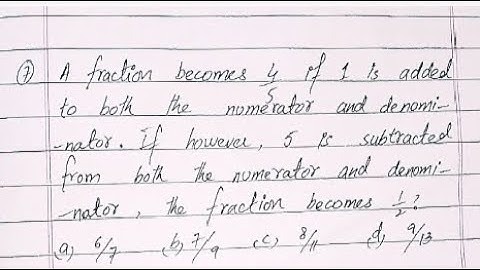 7 A fraction becomes 4/5 if 1 is added
to both the numerator and denomi-
-nator. If however, 5 is subtracted
from both the numerator and denomi-
-nator, the fraction becomes 1/2?
(a) 6/7 (b) 7/9 (c) 8/11 (d) 9/13